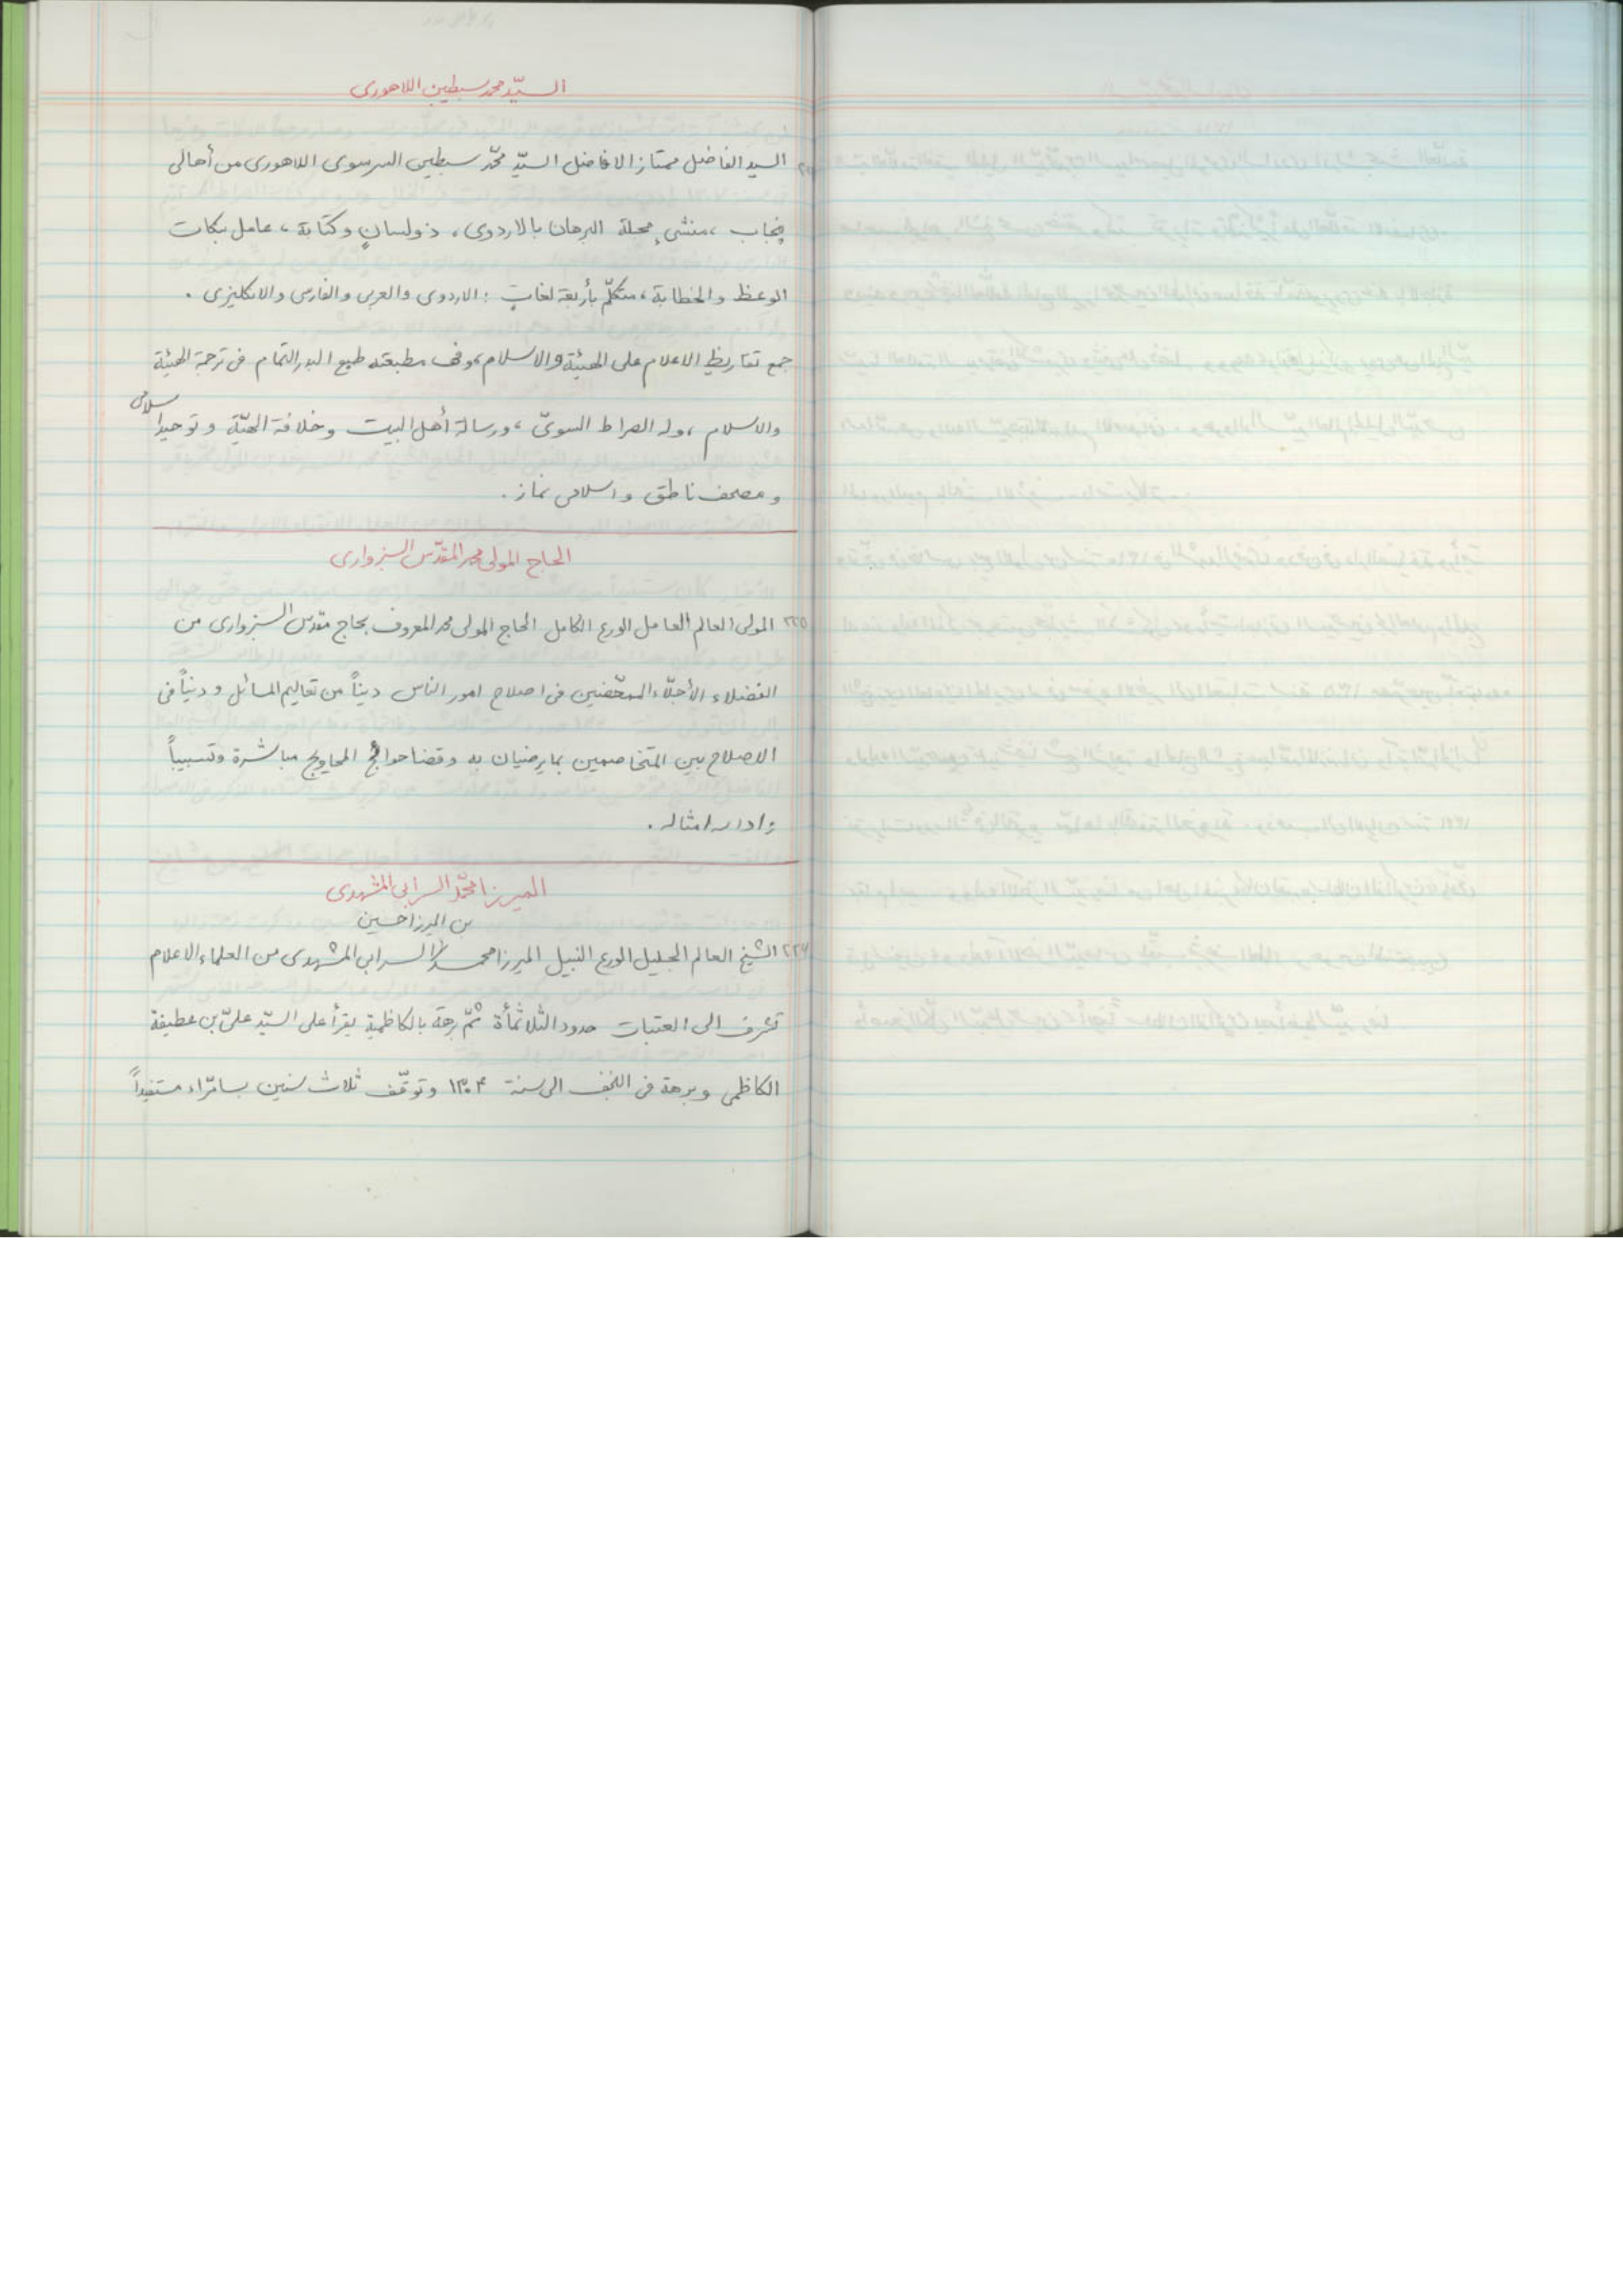 السيّد محمد سبطين اللاهورى
السيد الفاضل ممتاز الافاضل السيّد محمّد سبطين السرسوى اللاهورى من أهالى
پنجاب ، منشىء مجلة البرهان بالاردوى ، ذولسانٍ وكتابة ، عامل بكات
الوعظ والخطابة ، متكلّم بأربعة لغاتٍ : الاردوى والعربى والفارسى والانكليزى .
جمع تقاريظ الاعلام على الهيئة والاسلام ، وفى مطبعته طبع البدر التمام فى ترجمة الهيئة
والاسلام ، وله الصراط السوىّ ، ورسالة أهل البيت وخلافة الهيّة وتوحيد اسلامى
ومصحف ناطق واسلامى نماز .
الحاج المولى محمد المقدّس السبزوارى
٢٢٥ المولى العالم العامل الورع الكامل الحاج المولى محمد المعروف بحاج مقدّس السبزوارى من
الفضلاء الأجلّاء الممحّضين فى اصلاح امور الناس ديناً من تعاليم المسائل ودنيّاً فى
الاصلاح بين المتخاصمين بما يرضيان به وقضا حوائج المحاويج مباشرة وتسبيباً
زاد الله امثاله .
الميرزا محمّد السرابى المشهدى
بن الميرزا حسين
٢٢٦ الشيخ العالم الجليل الورع النبيل الميرزا محمد السرابى المشهدى من العلماء الاعلام
تشرف الى العتبات حدود الثلاثمأة ثمّ برهة بالكاظمية يقرأ على السيّد علىّ بن عطيفة
الكاظمى وبرهة فى النجف الى سنة ١٣٠٤ وتوقّف ثلاث سنين بسامرّاء مستفيداً